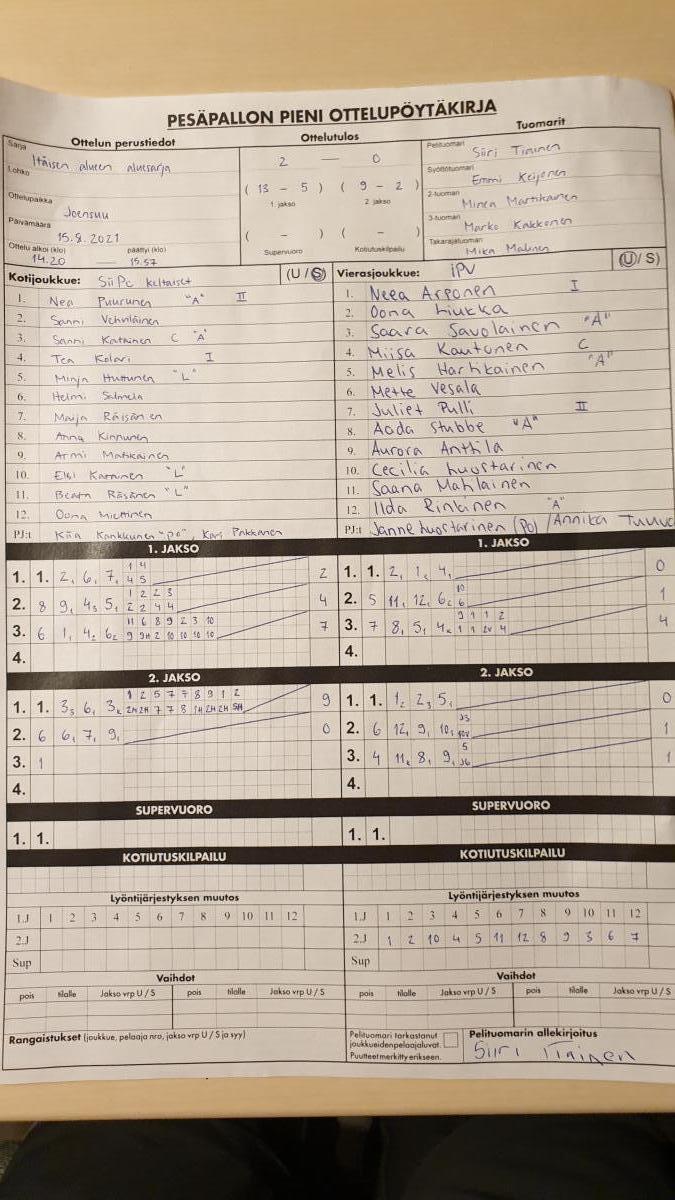 PESÄPALLON PIENI OTTELUPÖYTÄKIRJA
Ottelun perustiedot
Ottelutulos
Tuomarit
Sarja Itäisen alueen aluesarja
Lohko
Ottelupaikka Joensuu
Päivämäärä 15.8.2021
Ottelu alkoi (klo) päättyi (klo)
14.20 — 15.57
2 — 0
( 13 – 5 ) ( 9 – 2 )
1. jakso 2. jakso
( – ) ( – )
Supervuoro Kotiutuskilpailu
Pelituomari Siiri Tiainen
Syöttötuomari Emmi Keijonen
2-tuomari Minea Martikainen
3-tuomari Marko Kakkonen
Takarajatuomari Mika Malinen
Kotijoukkue: SiiPe keltaiset (U / S)
1. Nea Puurunen "A" II
2. Sanni Vehviläinen
3. Sanni Kattainen C "A"
4. Tea Kolari I
5. Minja Huttunen "L"
6. Helmi Salmela
7. Maija Räisänen
8. Anna Kinnunen
9. Armi Matikainen
10. Elli Karhunen "L"
11. Beata Räsänen "L"
12. Oona Miettinen
PJ:t Kiia Kankkunen "po", Kari Pakkanen
Vierasjoukkue: IPV (U / S)
1. Neea Arponen I
2. Oona Liukka
3. Saara Savolainen "A"
4. Miisa Kautonen C
5. Melis Hartikainen "A"
6. Mette Vesala
7. Juliet Pulli II
8. Aada Stubbe "A"
9. Aurora Anttila
10. Cecilia Luostarinen
11. Saana Mahlainen
12. Iida Rinkinen "A"
PJ:t Janne Luostarinen (Po) / Annika
1. JAKSO
1. 1. 2, 6, 7, 1 4 2
4 5
2. 8 9, 4s 5, 1 2 2 3 4
2 2 4 4
3. 6 1, 4 6 11 6 8 9 2 3 10 7
9 9H 2 10 10 10 10
4.
1. JAKSO
1. 1. 2, 1, 4, 0
2. 5 11, 12, 6 10 1
6
3. 7 8, 5, 4 9 1 1 2 4
1 1 2V 4
4.
2. JAKSO
1. 1. 3s 6, 3 1 2 5 7 7 8 9 1 2 9
2H 2H 7 7 8 1H 2H 2H 5H
2. 6 6, 7, 9, 0
3. 1
4.
2. JAKSO
1. 1. 1, 2, 5, 0
2. 6 12, 9, 10, J3 1
10V
3. 4 11, 8, 9, 5 1
J6
4.
SUPERVUORO
1. 1.
SUPERVUORO
1. 1.
KOTIUTUSKILPAILU
KOTIUTUSKILPAILU
Lyöntijärjestyksen muutos
1.J 1 2 3 4 5 6 7 8 9 10 11 12
2.J
Sup
Lyöntijärjestyksen muutos
1.J 1 2 3 4 5 6 7 8 9 10 11 12
2.J 1 2 10 4 5 11 12 8 9 3 6 7
Sup
Vaihdot
pois tilalle Jakso vrp U / S pois tilalle Jakso vrp U / S
Vaihdot
pois tilalle Jakso vrp U / S pois tilalle Jakso vrp U / S
Rangaistukset (joukkue, pelaaja nro, jakso vrp U / S ja syy)
Pelituomari tarkastanut
joukkueiden pelaajaluvat.
Puutteet merkitty erikseen.
Pelituomarin allekirjoitus
Siiri Tiainen